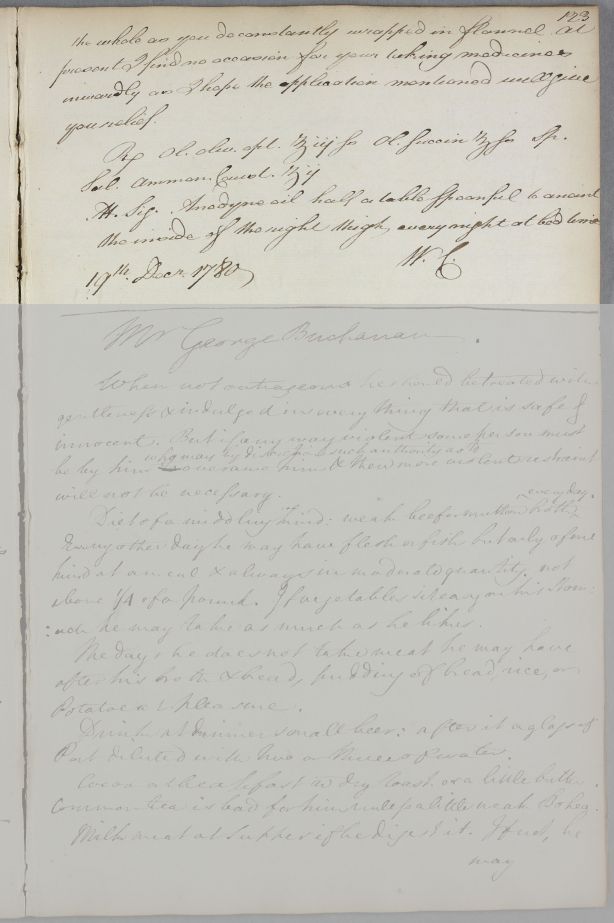 123
the whole as you do constantly wrapped in flannel. At
present I find no occasion for your taking medicines
inwardly as I hope the application mentioned will give
you relief.
Rx Ol. oliv. opt. ℥iij ſs Ol. Succin ℥ſs Sp.
Sal. Ammon. Caust. ℥ij
M. Sig. Anodyne oil half a table spoonful to anoint
the inside of the right thigh, every night at bed time
19th. Decr. 1780 W. C.
Mr George Buchanan.
When not outrageous he should be treated with
gentleness & indulged in every thing that is safe &
innocent. But if any way violent some person must
be by him who may by disce such authority as to
overawe him & then more violent restraint
will not be necessary.
Diet of a middling kind: weak beef or mutton broth every day.
Every other day he may have flesh or fish but only of one
kind at a meal & always in moderate quantity not
above 1/4 of a pound. If vegetables sit easy on his Stom:
:ach he may take as much as he likes.
The days he does not take meat he may have
after his broth & bread, pudding of bread, rice, or
Potatoe at pleasure.
Drink at dinner small beer: after it a glass of
Port diluted with two or three of water.
Cocoa at breakfast with dry toast or a little butter.
Common tea is bad for him unless a little weak Bohea.
Milk meat at Supper if he digest it. If not, he
may